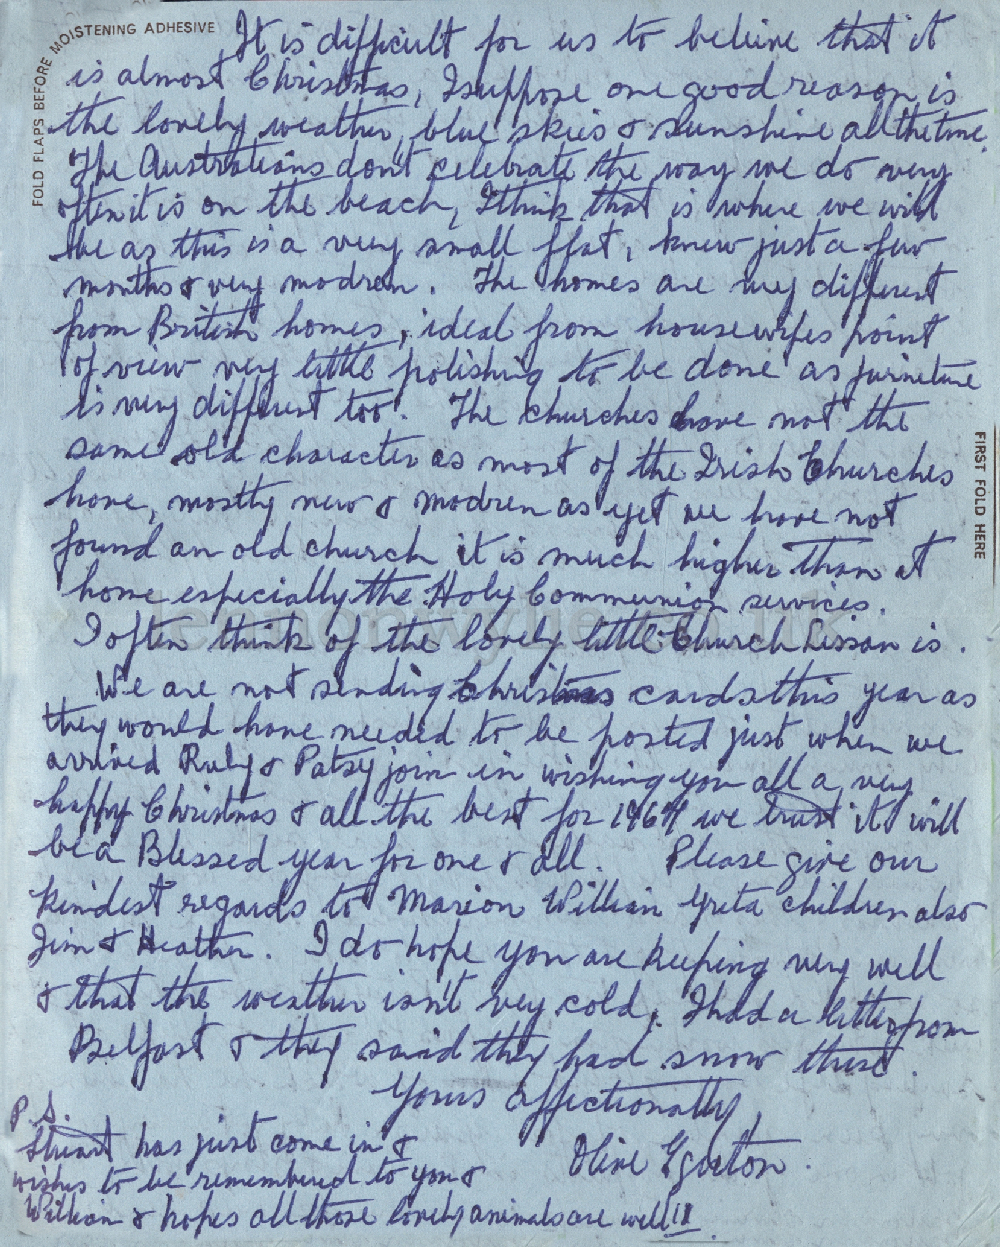 FOLD FLAPS BEFORE MOISTENING ADHESIVE
It is difficult for us to beleive that it
is almost Christmas, I suppose one good reason is
the lovely weather, blue skies & sunshine all the time.
The Australians don't celebrate the way we do very
often it is on the beach, I think that is where we will
be as this is a very small flat, knew just a few
months & very modren. The homes are very different
from British homes, ideal from housewifes point
of view very little polishing to be done as furneture
is very different too. The churches have not the
same old character as most of the Irish Churches
have, mostly new & modren as yet we have not
found an old church it is much higher than at
home especially the Holy Communion services.
I often think of the lovely little Church Lissan is.
We are not sending Christmas cards this year as
they would have needed to be posted just when we
arrived Ruby & Patsy join in wishing you all a very
happy Christmas & all the best for 1964 we trust it will
be a Blessed year for one & all. Please give our
kindest regards to Marion William Greta children also
Jim & Heather. I do hope you are keeping very well
& that the weather isn't very cold, I had a letter from
Belfast & they said they had snow there.
Yours affectionatly,
Olive Egerton.
P.S.
Stuart has just come in &
wishes to be remembered to you &
William & hopes all those lovely animals are well!!
FIRST FOLD HERE
lennonwylie.co.uk